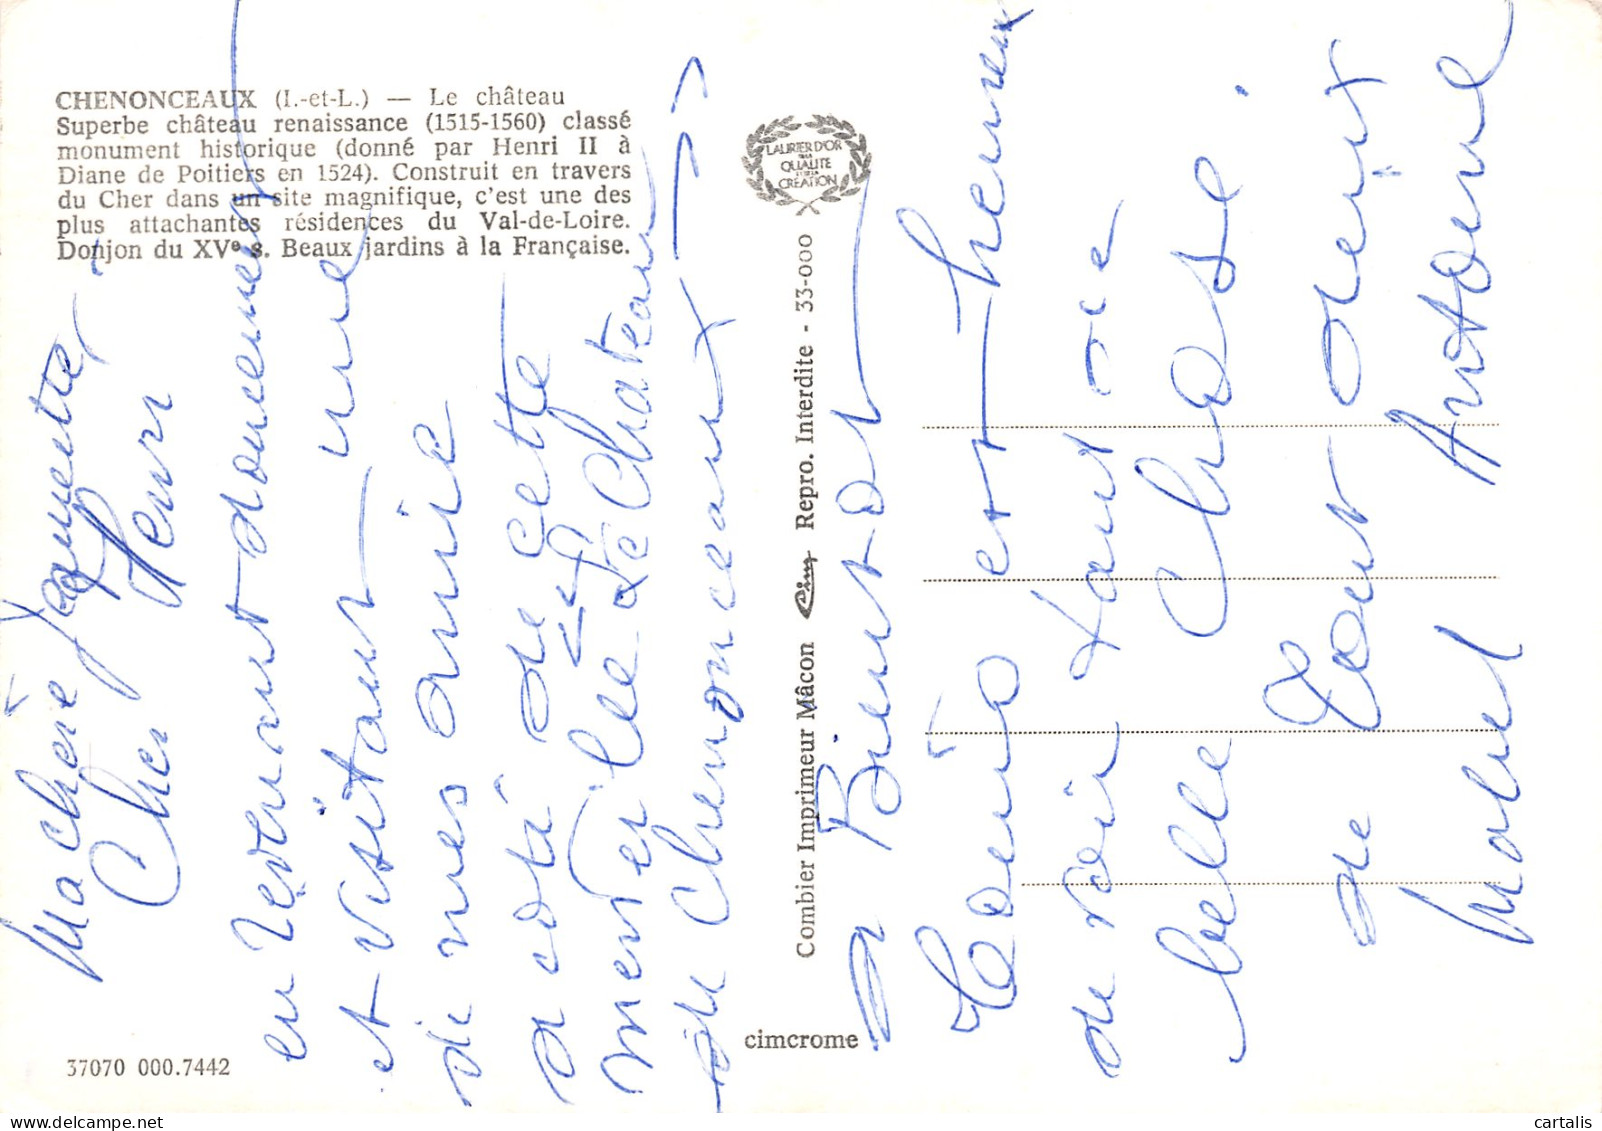 CHENONCEAUX (I.-et-L.) — Le château
Superbe château renaissance (1515-1560) classé
monument historique (donné par Henri II à
Diane de Poitiers en 1524). Construit en travers
du Cher dans un site magnifique, c'est une des
plus attachantes résidences du Val-de-Loire.
Donjon du XVe s. Beaux jardins à la Française.
LAURIER D'OR
DE LA
QUALITE
ET DE LA
CRÉATION
Combier Imprimeur Mâcon Cim Repro. Interdite - 33-000
cimcrome
37070 000.7442
Ma chère Jacquette,
Cher Henri
en revenant doucement
et visitant une
de mes amie
a coté de cette
merveille le Chateau
de Chenonceaux
a Bientot
Louis est heureux
de voir tant de
belle Chose.
de Tout
Mabel Antoine
delcampe.net
cartalis